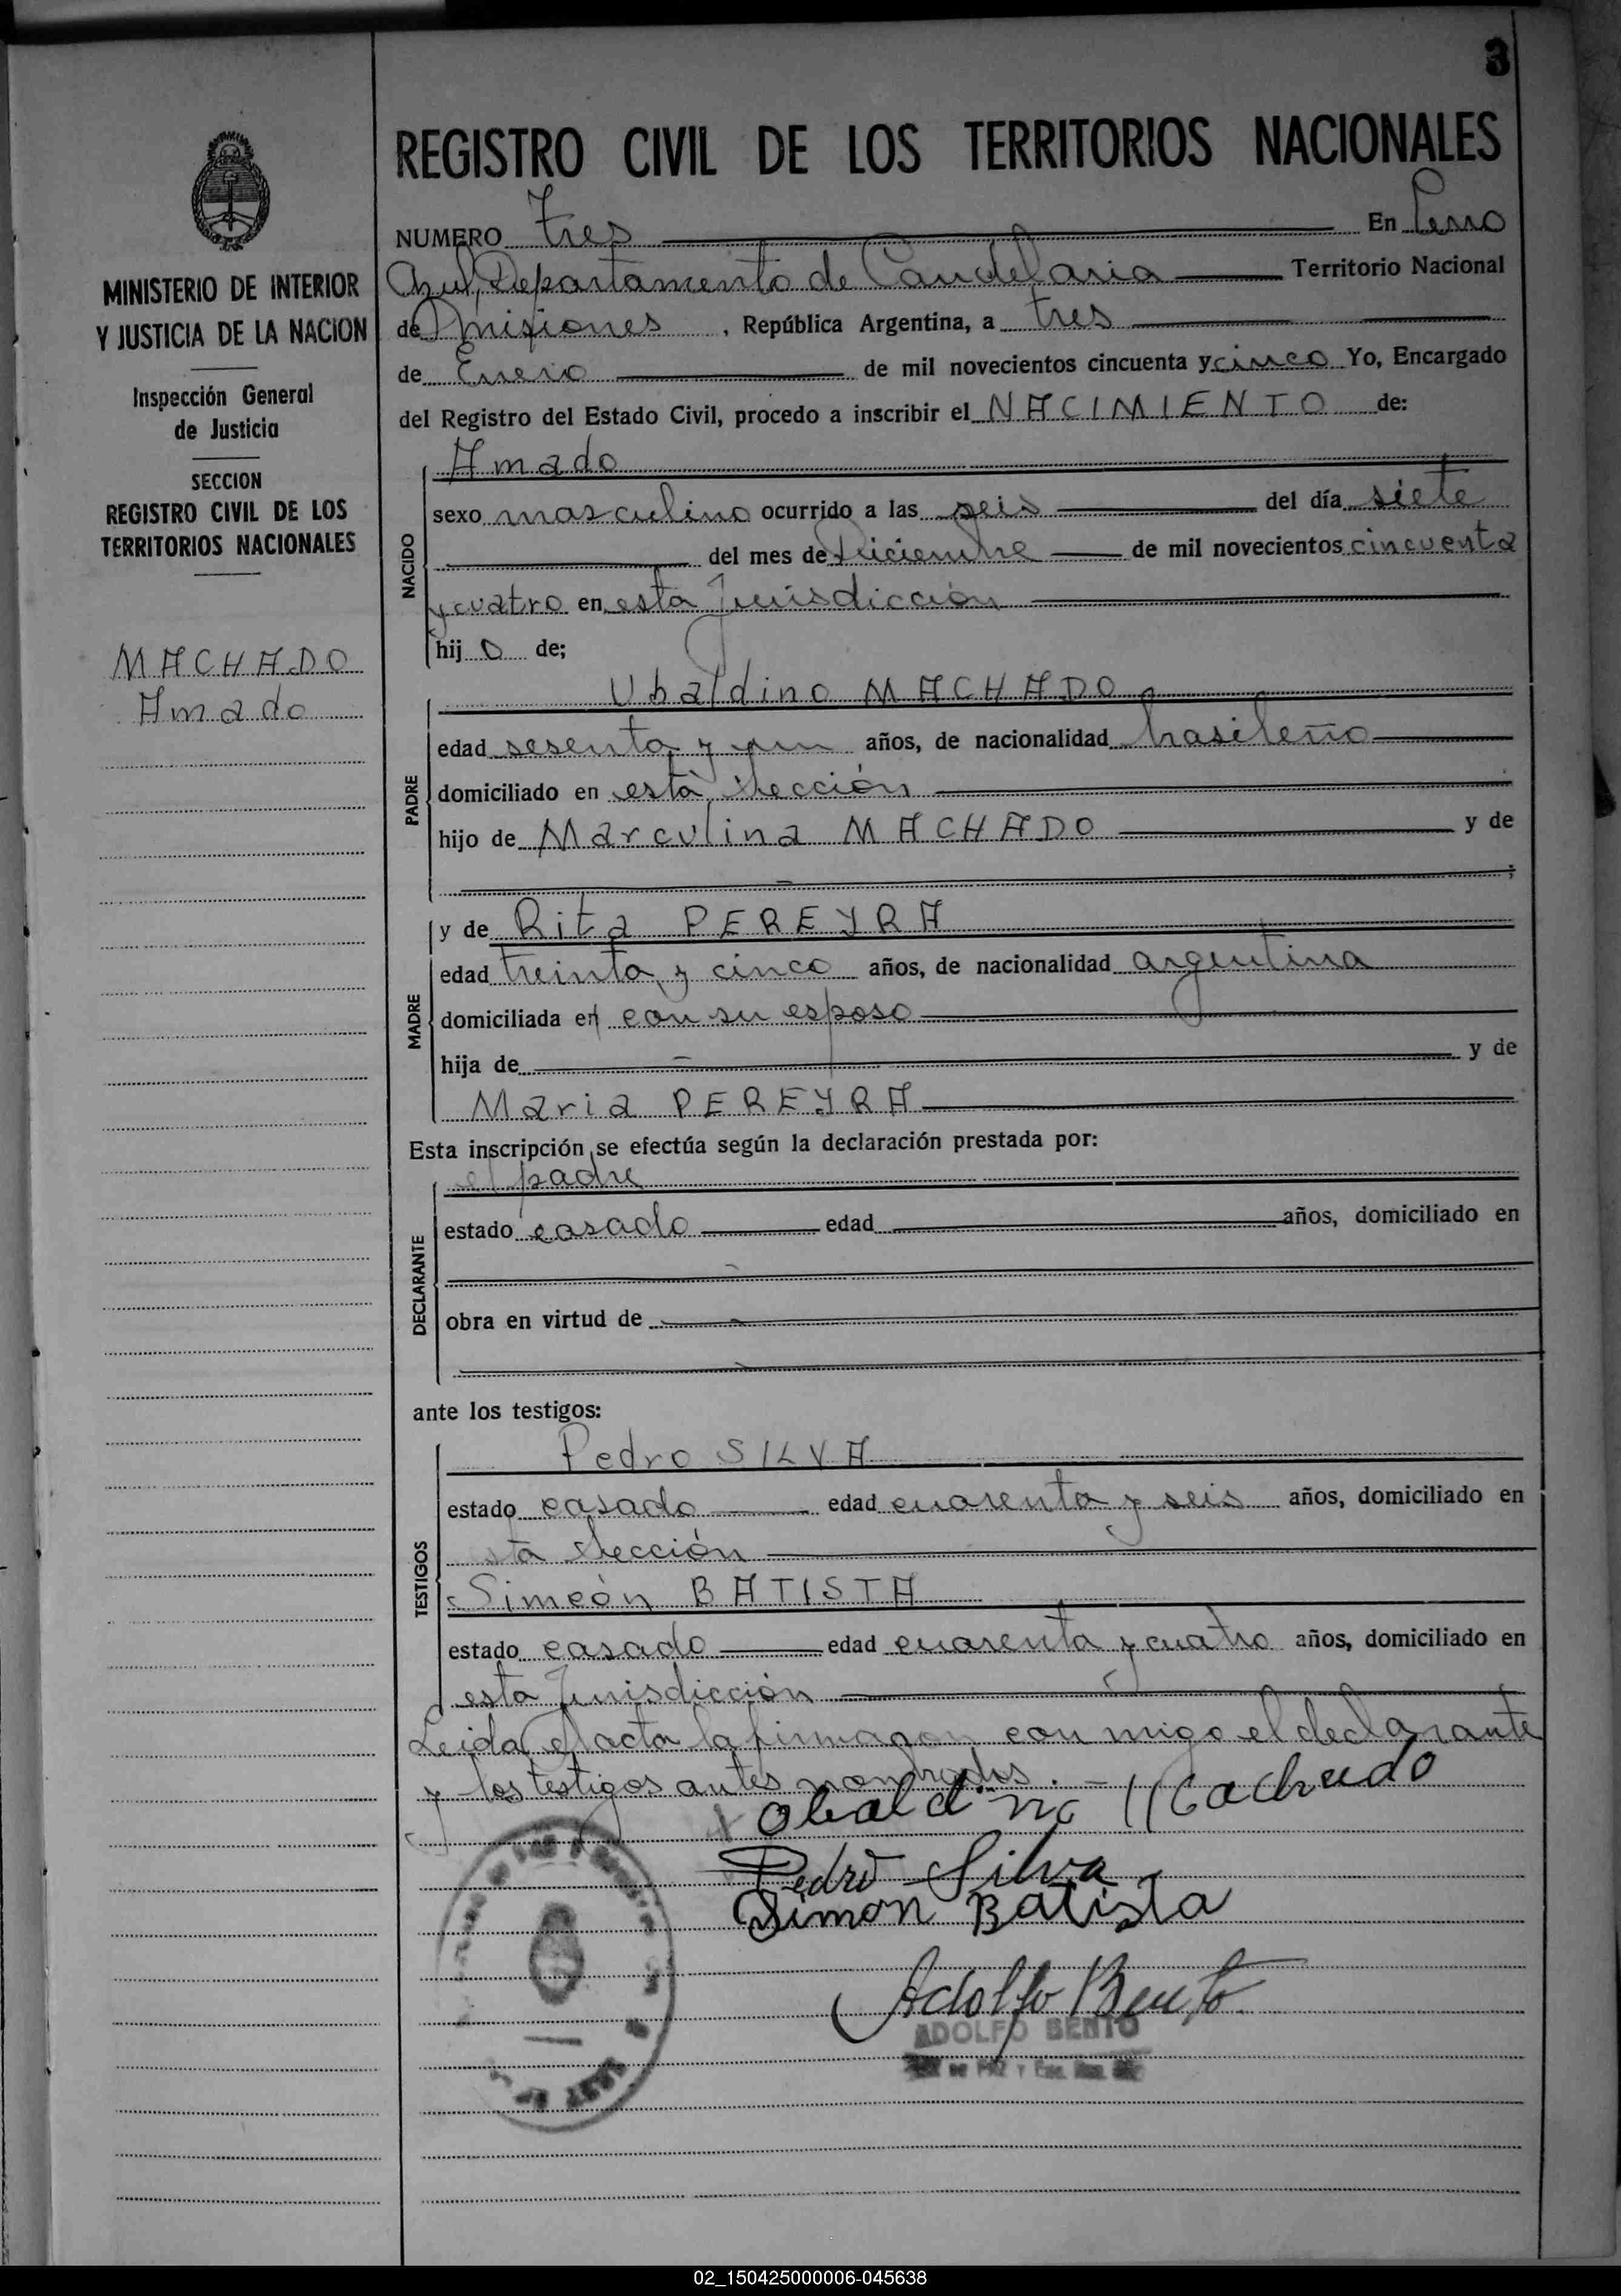 3
REGISTRO CIVIL DE LOS TERRITORIOS NACIONALES
NUMERO tres En Cerro
Azul, Departamento de Candelaria Territorio Nacional
de Misiones, República Argentina, a tres
de Enero de mil novecientos cincuenta y cinco Yo, Encargado
del Registro del Estado Civil, procedo a inscribir el NACIMIENTO de:
MINISTERIO DE INTERIOR
Y JUSTICIA DE LA NACION
Inspección General
de Justicia
SECCION
REGISTRO CIVIL DE LOS
TERRITORIOS NACIONALES
MACHADO
Amado
NACIDO
Amado
sexo masculino ocurrido a las seis del día siete
del mes de Diciembre de mil novecientos cincuenta
y cuatro en esta Jurisdicción
hijo de;
PADRE
Ubaldino MACHADO
edad sesenta y un años, de nacionalidad brasileño
domiciliado en esta Sección
hijo de Marculina MACHADO y de
;
MADRE
y de Rita PEREYRA
edad treinta y cinco años, de nacionalidad argentina
domiciliada en con su esposo
hija de y de
Maria PEREYRA
Esta inscripción se efectúa según la declaración prestada por:
DECLARANTE
el padre
estado casado edad años, domiciliado en
obra en virtud de
ante los testigos:
TESTIGOS
Pedro SILVA
estado casado edad cuarenta y seis años, domiciliado en
esta Sección
Simeón BATISTA
estado casado edad cuarenta y cuatro años, domiciliado en
esta Jurisdicción
Leida el acta la firmaron con migo el declarante
y los testigos antes nombrados.
Obaldino Machado
Pedro Silva
Simon Batista
Adolfo Bento
ADOLFO BENTO
DE PAZ Y
02_150425000006-045638